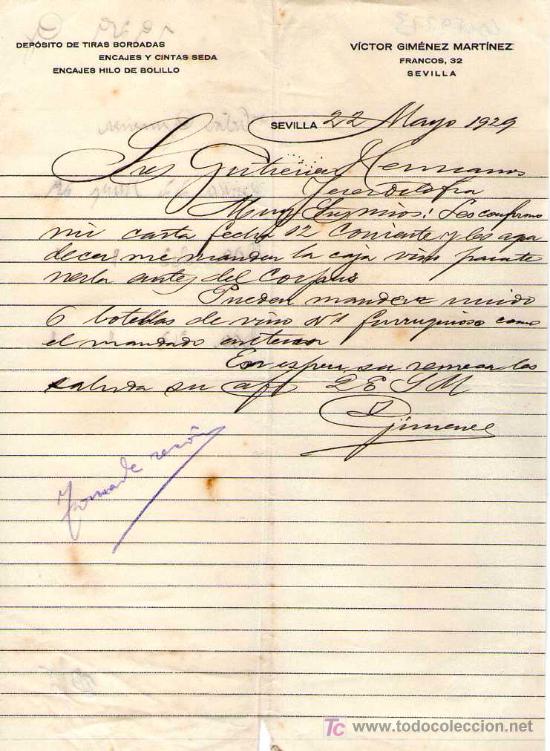 DEPÓSITO DE TIRAS BORDADAS
ENCAJES Y CINTAS SEDA
ENCAJES HILO DE BOLILLO
VÍCTOR GIMÉNEZ MARTÍNEZ
FRANCOS, 32
SEVILLA
SEVILLA 22 Mayo 1929
Sres Gutierrez Hermanos
Jerez de la Fra
Muy Sres mios: Les confirmo
mi carta fecha 12 corriente y les agra
decere me manden la caja vino para te
nerla antes del Corpus
Pueden mandar unido
6 botellas de vino ferruginoso como
el mandado anterior
En espera su remesa los
saluda su aft
Gimenez
Tomade razón
Tc www.todocoleccion.net